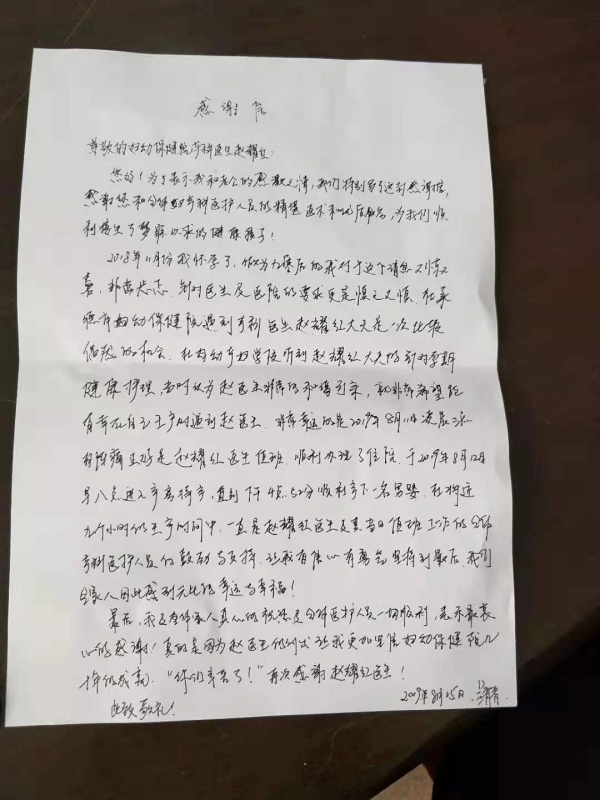 感谢信
尊敬的妇幼保健院产科医生赵耀红：
您好！为了表示我和老公的感激之情，我们特别写了这封感谢信，
感谢您和全体产科医护人员的精湛医术和服务，为我们顺
利接生了梦寐以求的健康孩子！
2018年11月份我怀孕了，做为九零后的我对于这个消息又惊又
喜，非常忐忑，针对医生及医院的要求更是慎之又慎，在承
德市妇幼保健院遇到产科医生赵耀红大夫是一次比较
偶然的机会，在妇幼孕妇学院听到赵耀红大夫的针对孕期
健康护理，当时认为赵医生非常的和蔼可亲，就非常希望能
有幸在自己生产时遇到赵医生，非常幸运的是2019年8月11日凌晨三点
阵痛正好是赵耀红医生值班，顺利办理了住院，于2019年8月12日
早八点进入产房待产，直到下午顺利产下一名男婴，在将近
九个小时的生产时间中，一直是赵耀红医生及其当日值班工作的全体
产科医护人员的鼓励与支持，让我有信心有勇气坚持到最后，我们
全家人因此感到无比的幸运与幸福！
最后，我及全体家人真心的祝愿全体医护人员一切顺利，表示最衷
心的感谢！真的是因为赵医生的付出让我更加坚信妇幼保健院几
十年的成就，“你们辛苦了！”再次感谢赵耀红医生！
此致敬礼！
2019年8月15日